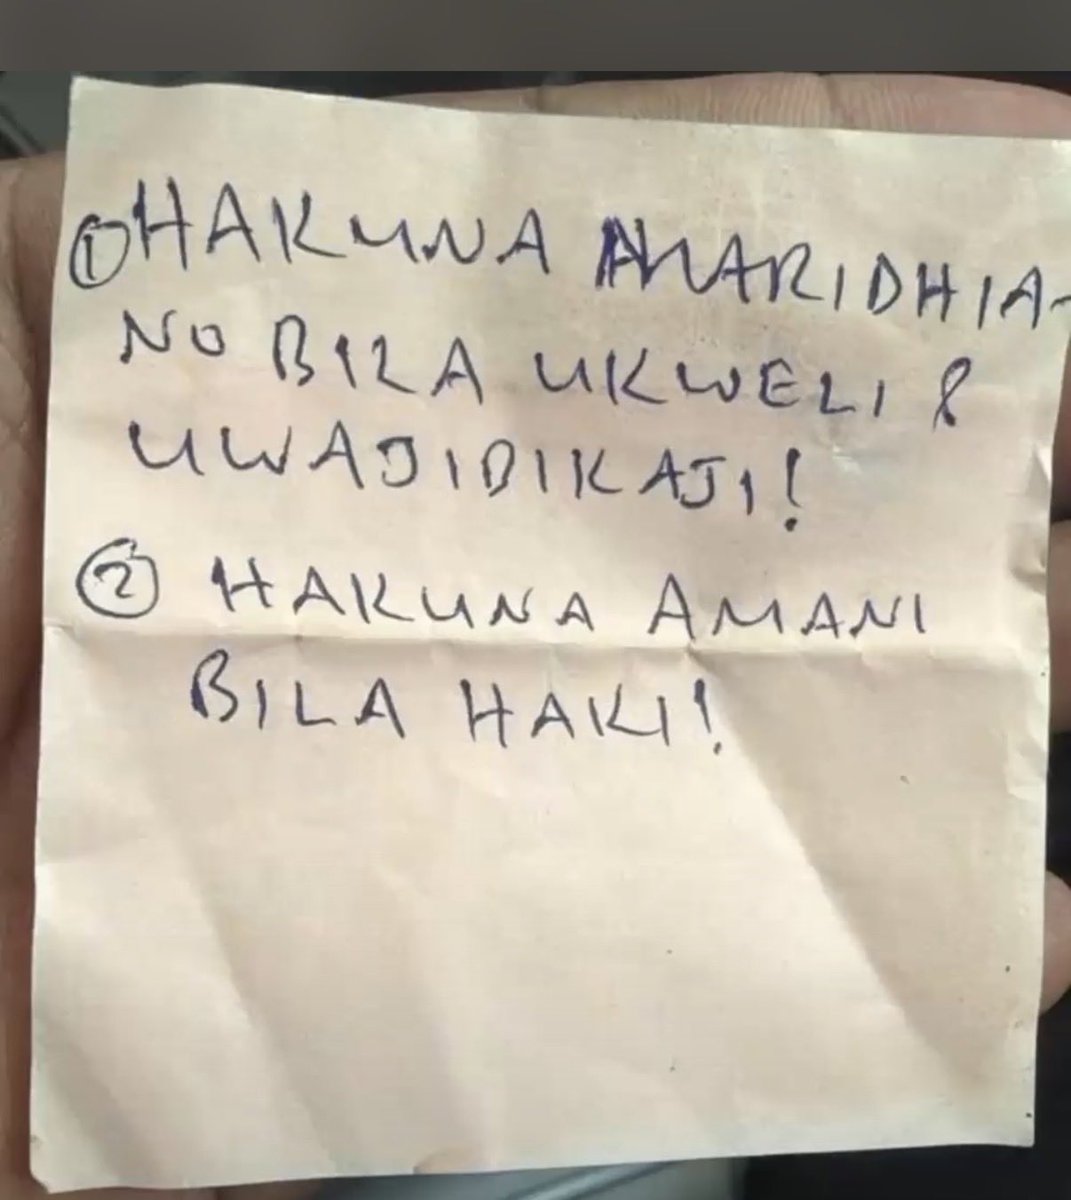 ① HAKUNA MARIDHIA-
NO BILA UKWELI &
UWAJIBIKAJI!
② HAKUNA AMANI
BILA HAKI!